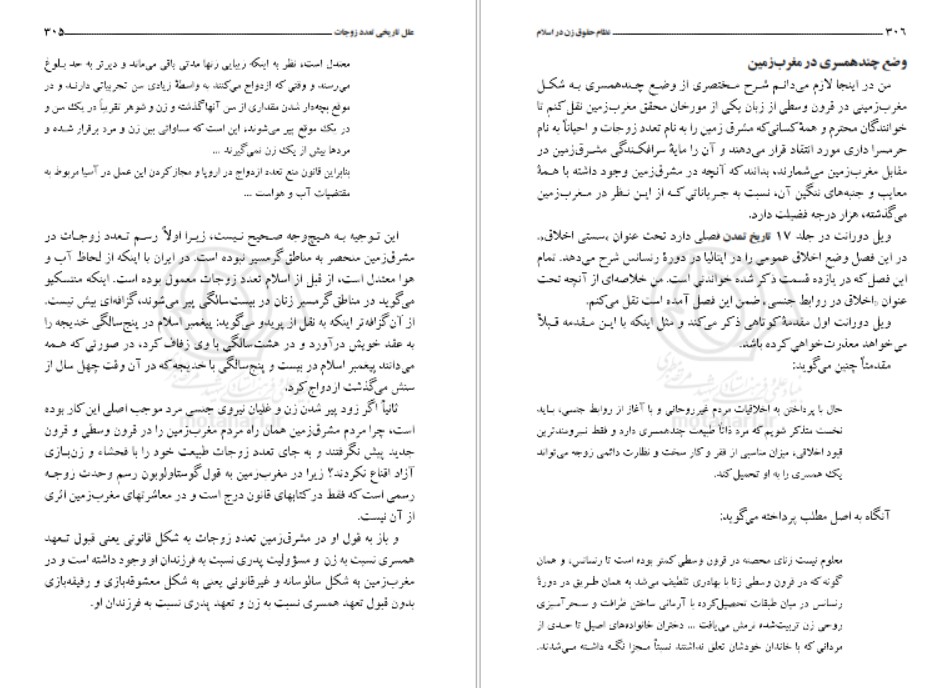 علل تاریخی تعدد زوجات ۳۰۵
معتدل است، نظر به اینکه زیبایی زنها مدتی باقی می‌ماند و دیرتر به حد بلوغ
می‌رسند و وقتی که ازدواج می‌کنند به واسطهٔ زیادی سن تجربیاتی دارند و در
موقع بچه‌دار شدن مقداری از سن آنها گذشته و زن و شوهر تقریباً در یک سن و
در یک موقع پیر می‌شوند، این است که مساواتی بین زن و مرد برقرار شده و
مردها بیش از یک زن نمی‌گیرند ...
بنابراین قانون منع تعدد ازدواج در اروپا و مجاز کردن این عمل در آسیا مربوط به
مقتضیات آب و هواست ...
این توجیه به هیچ‌وجه صحیح نیست، زیرا اولاً رسم تعدد زوجات در
مشرق‌زمین منحصر به مناطق گرمسیر نبوده است. در ایران با اینکه از لحاظ آب و
هوا معتدل است، از قبل از اسلام تعدد زوجات معمول بوده است. اینکه منتسکیو
می‌گوید در مناطق گرمسیر زنان در بیست‌سالگی پیر می‌شوند، گزافه‌ای بیش نیست.
از آن گزافه‌تر اینکه به نقل از پریدو می‌گوید: پیغمبر اسلام در پنج‌سالگی خدیجه را
به عقد خویش درآورد و در هشت‌سالگی با وی زفاف کرد، در صورتی که همه
می‌دانند پیغمبر اسلام در بیست و پنج‌سالگی با خدیجه که در آن وقت چهل سال از
سنش می‌گذشت ازدواج کرد.
ثانیاً اگر زود پیر شدن زن و غلیان نیروی جنسی مرد موجب اصلی این کار بوده
است، چرا مردم مشرق‌زمین همان راه مردم مغرب‌زمین را در قرون وسطی و قرون
جدید پیش نگرفتند و به جای تعدد زوجات طبیعت خود را با فحشاء و زن‌بازی
آزاد اقناع نکردند؟ زیرا در مغرب‌زمین به قول گوستاولوبون رسم وحدت زوجه
رسمی است که فقط در کتابهای قانون درج است و در معاشرتهای مغرب‌زمین اثری
از آن نیست.
و باز به قول او در مشرق‌زمین تعدد زوجات به شکل قانونی یعنی قبول تعهد
همسری نسبت به زن و مسؤولیت پدری نسبت به فرزندان او وجود داشته است و در
مغرب‌زمین به شکل سالوسانه و غیرقانونی یعنی به شکل معشوقه‌بازی و رفیقه‌بازی
بدون قبول تعهد همسری نسبت به زن و تعهد پدری نسبت به فرزندان او.
۳۰۶ نظام حقوق زن در اسلام
وضع چندهمسری در مغرب‌زمین
من در اینجا لازم می‌دانم شرح مختصری از وضع چندهمسری به شکل
مغرب‌زمینی در قرون وسطی از زبان یکی از مورخان محقق مغرب‌زمین نقل کنم تا
خوانندگان محترم و همهٔ کسانی که مشرق زمین را به نام تعدد زوجات و احیاناً به نام
حرمسرا داری مورد انتقاد قرار می‌دهند و آن را مایهٔ سرافکندگی مشرق‌زمین در
مقابل مغرب‌زمین می‌شمارند، بدانند که آنچه در مشرق‌زمین وجود داشته با همهٔ
معایب و جنبه‌های ننگین آن، نسبت به جریاناتی که از این نظر در مغرب‌زمین
می‌گذشته، هزار درجه فضیلت دارد.
ویل دورانت در جلد ۱۷ تاریخ تمدن فصلی دارد تحت عنوان «سستی اخلاق».
در این فصل وضع اخلاق عمومی را در ایتالیا در دورهٔ رنسانس شرح می‌دهد. تمام
این فصل که در یازده قسمت ذکر شده خواندنی است. من خلاصه‌ای از آنچه تحت
عنوان «اخلاق در روابط جنسی» ضمن این فصل آمده است نقل می‌کنم.
ویل دورانت اول مقدمهٔ کوتاهی ذکر می‌کند و مثل اینکه با این مقدمه قبلاً
می‌خواهد معذرت‌خواهی کرده باشد.
مقدمتاً چنین می‌گوید:
حال با پرداختن به اخلاقیات مردم غیرروحانی و با آغاز از روابط جنسی، باید
نخست متذکر شویم که مرد ذاتاً طبیعت چندهمسری دارد و فقط نیرومندترین
قیود اخلاقی، میزان مناسبی از فقر و کار سخت و نظارت دائمی زوجه می‌تواند
یک همسری را به او تحمیل کند.
آنگاه به اصل مطلب پرداخته می‌گوید:
معلوم نیست زنای محصنه در قرون وسطی کمتر بوده است تا رنسانس، و همان
گونه که در قرون وسطی زنا با بهادری تلطیف می‌شد به همان طریق در دورهٔ
رنسانس در میان طبقات تحصیل‌کرده با آرمانی ساختن ظرافت و سحرآمیزی
روحی زن تربیت‌شده نرمش می‌یافت ... دختران خانواده‌های اصیل تا حدی از
مردانی که با خاندان خودشان تعلق نداشتند نسبتاً مجزا نگه داشته می‌شدند.
motahari.ir
motahari.ir